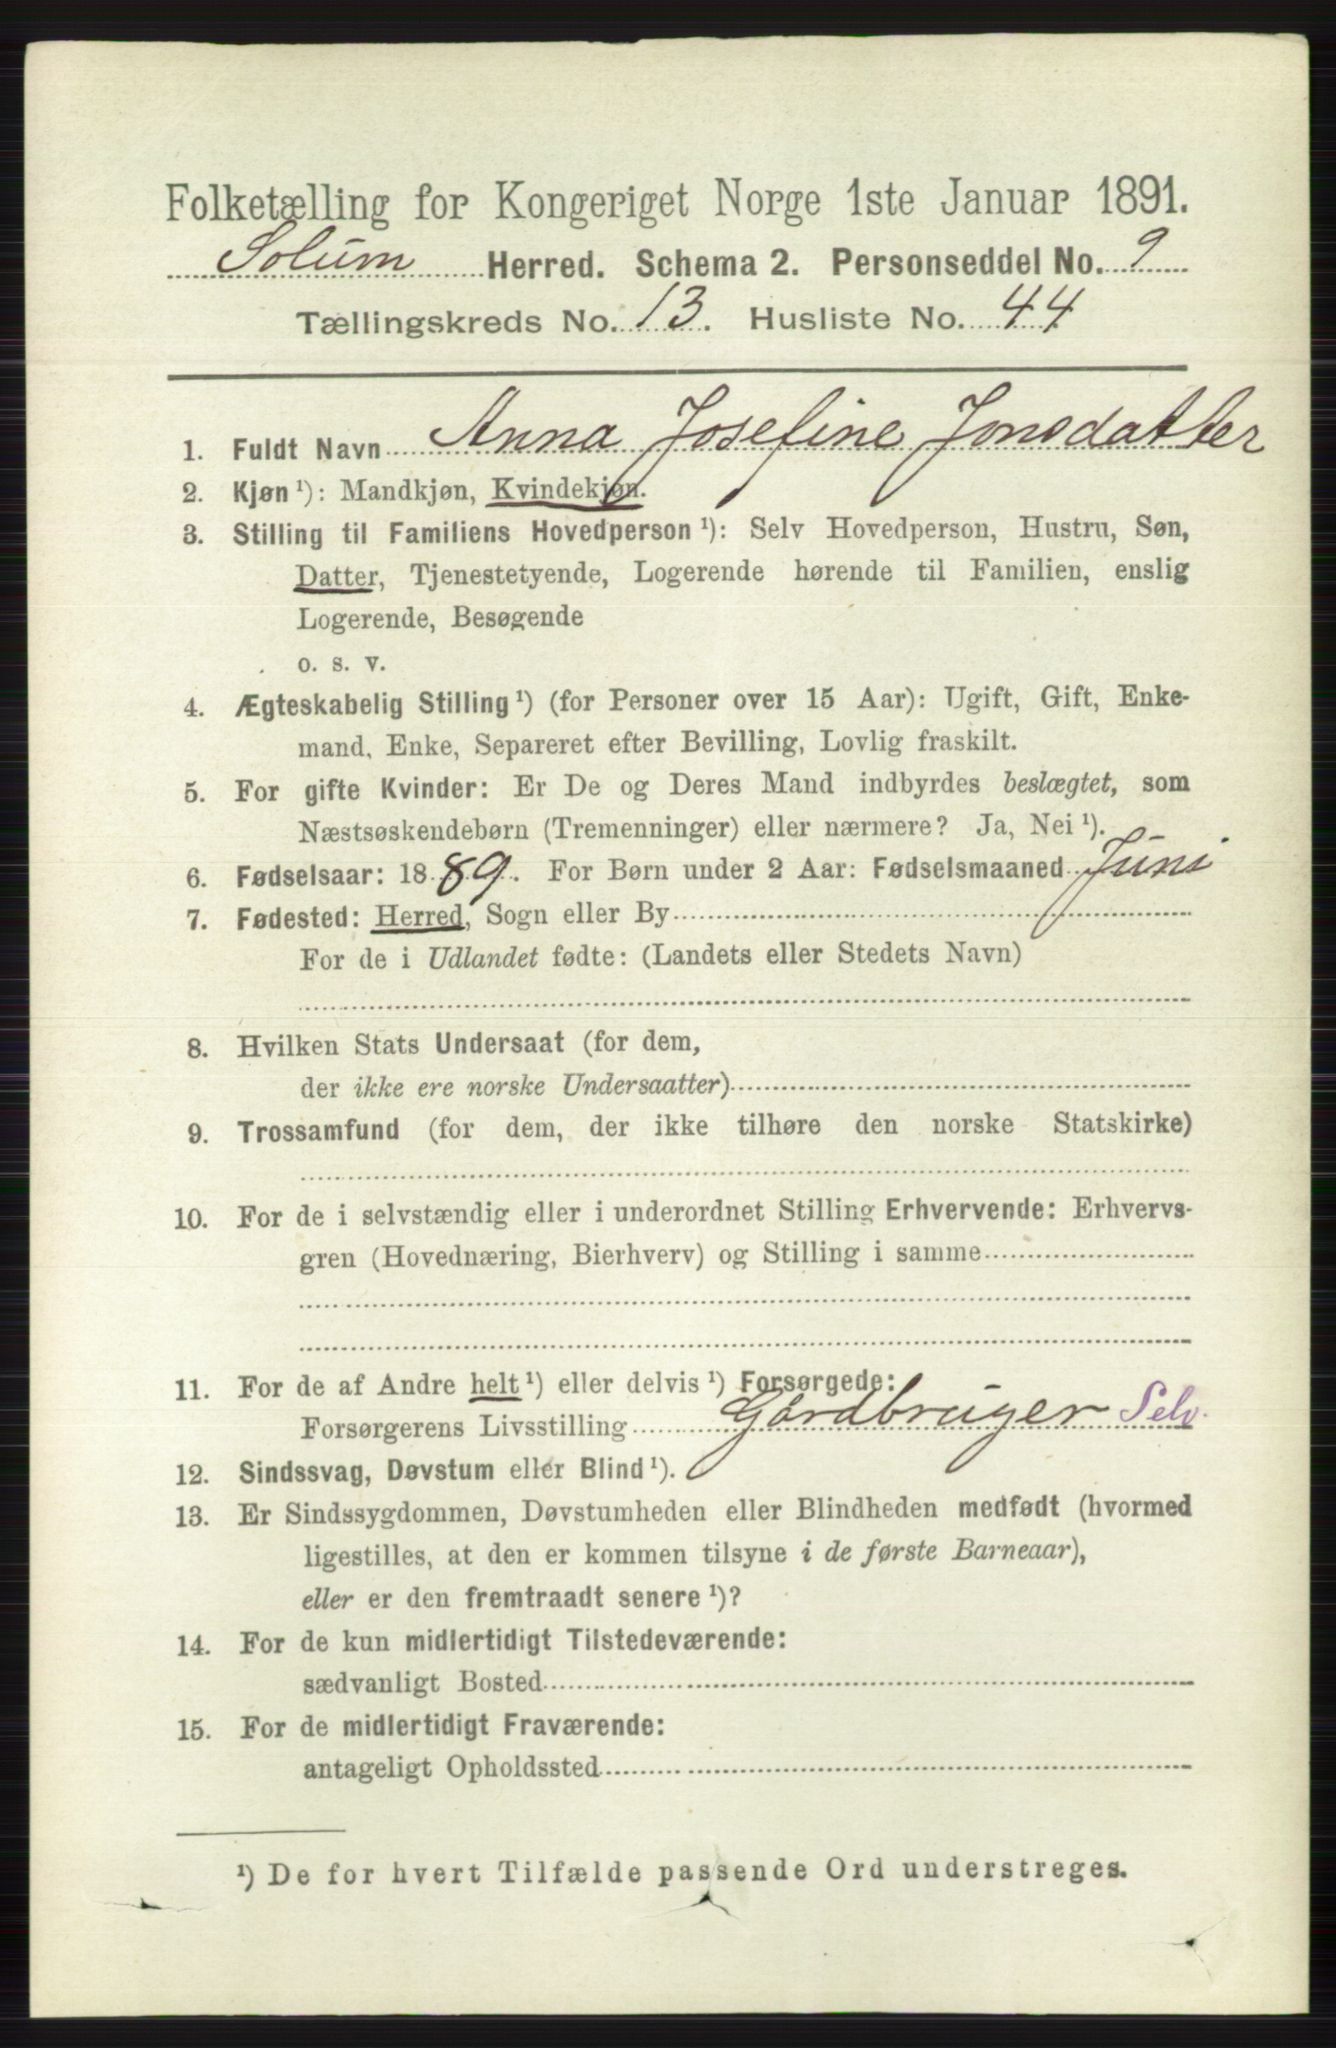 Folketælling for Kongeriget Norge 1ste Januar 1891.
Solum Herred. Schema 2. Personseddel No. 9
Tællingskreds No. 13. Husliste No. 44
1. Fuldt Navn Anna Josefine Jonsdatter
2. Kjøn ¹): Mandkjøn, Kvindekjøn.
3. Stilling til Familiens Hovedperson ¹): Selv Hovedperson, Hustru, Søn,
Datter, Tjenestetyende, Logerende hørende til Familien, enslig
Logerende, Besøgende
o. s. v.
4. Ægteskabelig Stilling ¹) (for Personer over 15 Aar): Ugift, Gift, Enke-
mand, Enke, Separeret efter Bevilling, Lovlig fraskilt.
5. For gifte Kvinder: Er De og Deres Mand indbyrdes beslægtet, som
Næstsøskendebørn (Tremenninger) eller nærmere? Ja, Nei ¹).
6. Fødselsaar: 1889. For Børn under 2 Aar: Fødselsmaaned Juni
7. Fødested: Herred, Sogn eller By
For de i Udlandet fødte: (Landets eller Stedets Navn)
8. Hvilken Stats Undersaat (for dem,
der ikke ere norske Undersaatter)
9. Trossamfund (for dem, der ikke tilhøre den norske Statskirke)
10. For de i selvstændig eller i underordnet Stilling Erhvervende: Erhvervs-
gren (Hovednæring, Bierhverv) og Stilling i samme
11. For de af Andre helt ¹) eller delvis ¹) Forsørgede:
Forsørgerens Livsstilling Gårdbruger Selv.
12. Sindssvag, Døvstum eller Blind ¹).
13. Er Sindssygdommen, Døvstumheden eller Blindheden medfødt (hvormed
ligestilles, at den er kommen tilsyne i de første Barneaar),
eller er den fremtraadt senere ¹)?
14. For de kun midlertidigt Tilstedeværende:
sædvanligt Bosted
15. For de midlertidigt Fraværende:
antageligt Opholdssted
¹) De for hvert Tilfælde passende Ord understreges.